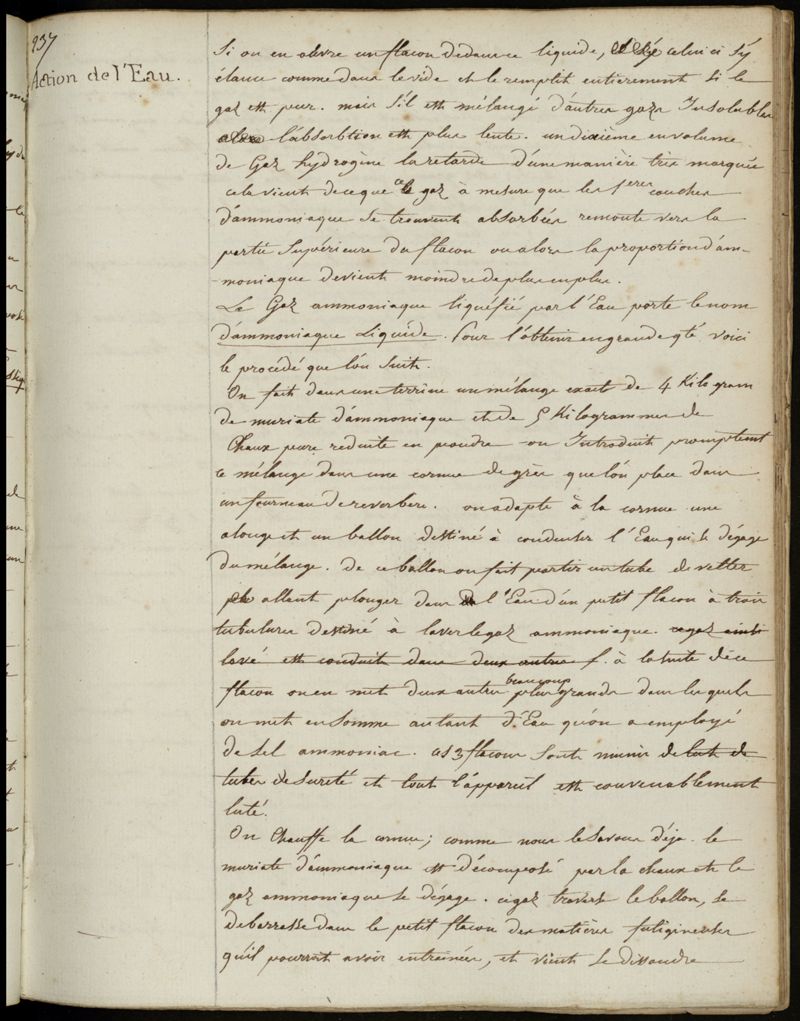 937
Action de l'Eau.
Si on en ouvre un flacon dedans ce liquide, celui ci s'y
élance comme dans le vide et le remplit entierement si le
gaz est pur. mais s'il est mélangé d'autres gazs Insolubles
alors l'absorbtion est plus lente. un dixième en volume
de Gaz hydrogene la retarde d'une manière très marquée
cela vient de ce que ce gaz à mesure que les 1eres couches
d'ammoniaque se trouvent absorbées remonte vers la
partie Supérieure du flacon ou alors la proportion d'am-
-moniaque devient moindre de plus en plus.
Le Gaz ammoniaque liquéfié par l'Eau porte le nom
d'ammoniaque Liquide. Pour l'obtenir en grande qté voici
le procédé que l'on suit.
On fait dans une terrine un mélange exact de 4 Kilogram
de muriate d'ammoniaque et de 5 Kilogrammes de
Chaux pure reduite en poudre on Introduit promptement
ce mélange dans une cornue de grès que l'on place dans
un fourneau de reverbere. on adapte à la cornue une
alonge et un ballon destiné à condenser l'Eau qui se dégage
du mélange. de ce ballon on fait partir un tube de welter
allant plonger dans l'Eau d'un petit flacon à trois
tubulures destiné à laver le gaz ammoniaque. ce gaz ainsi
lavé est conduit dans deux autres f. à la suite de ce
flacon on en met deux autres beaucoup plus grands dans lesquels
on met en somme autant d'Eau qu'on a employé
de sel ammoniac. ces 3 flacons sont munis de lut de
tubes de sureté et tout l'appareil est convenablement
luté.
On Chauffe la cornue; comme nous le savons déja le
muriate d'ammoniaque est décomposé par la chaux et le
gaz ammoniaque se dégage. ce gaz traverse le ballon, se
debarrasse dans le petit flacon des matières fuligineuses
qu'il pourrait avoir entrainées, et vient se dissoudre